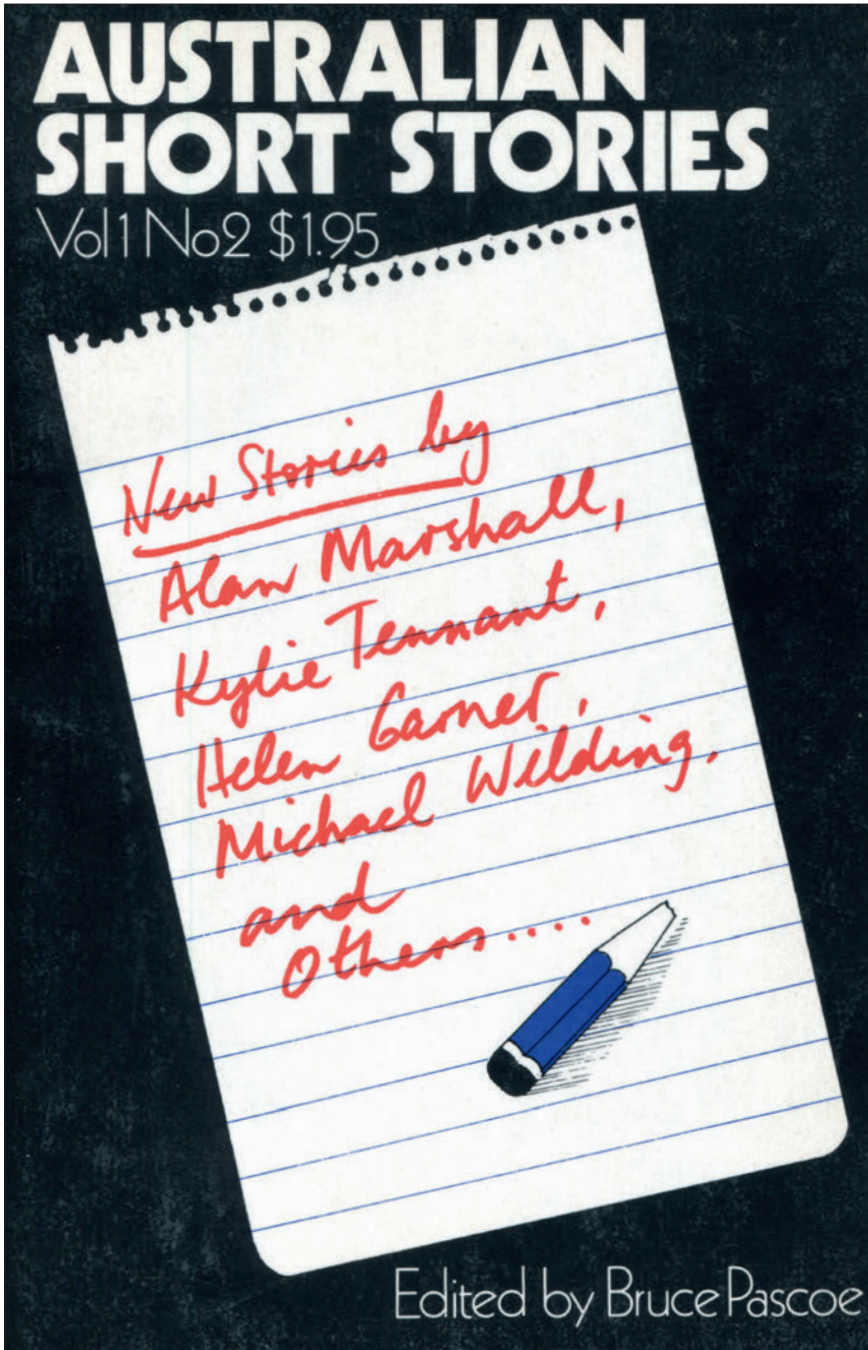 AUSTRALIAN
SHORT STORIES
Vol 1 No 2 $1.95
New Stories by
Alan Marshall,
Kylie Tennant,
Helen Garner,
Michael Wilding,
and
Others....
Edited by Bruce Pascoe